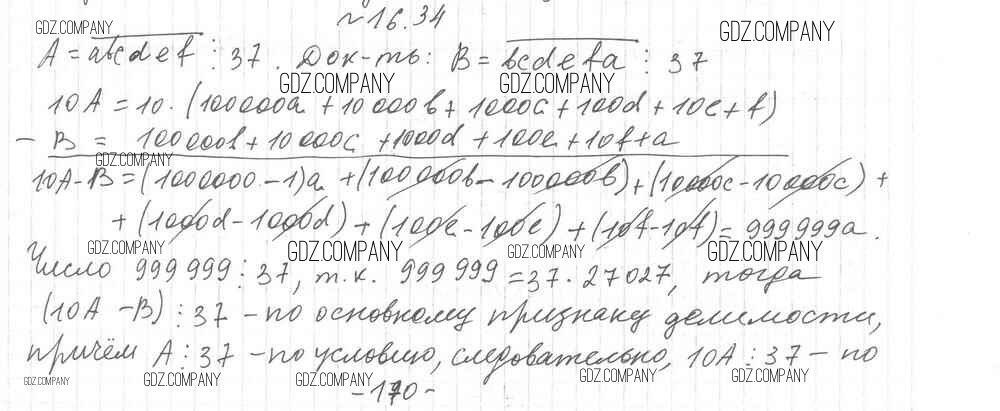 №16.34
A = abcdef ⋮ 37. Док-ть: B = bcdefa ⋮ 37
10A = 10·(100000a + 10000b + 1000c + 100d + 10e + f)
− B = 100000b + 10000c + 1000d + 100e + 10f + a
10A − B = (1000000 − 1)a + (100000b − 100000b) + (10000c − 10000c) +
+ (1000d − 1000d) + (100e − 100e) + (10f − 10f) = 999999a.
Число 999999 ⋮ 37, т.к. 999999 = 37·27027, тогда
(10A − B) ⋮ 37 – по основному признаку делимости,
причём A ⋮ 37 – по условию, следовательно, 10A ⋮ 37 – по
-170-
GDZ.COMPANY
GDZ.COMPANY
GDZ.COMPANY
GDZ.COMPANY
GDZ.COMPANY
GDZ.COMPANY
GDZ.COMPANY
GDZ.COMPANY
GDZ.COMPANY
GDZ.COMPANY
GDZ.COMPANY
GDZ.COMPANY
GDZ.COMPANY
GDZ.COMPANY